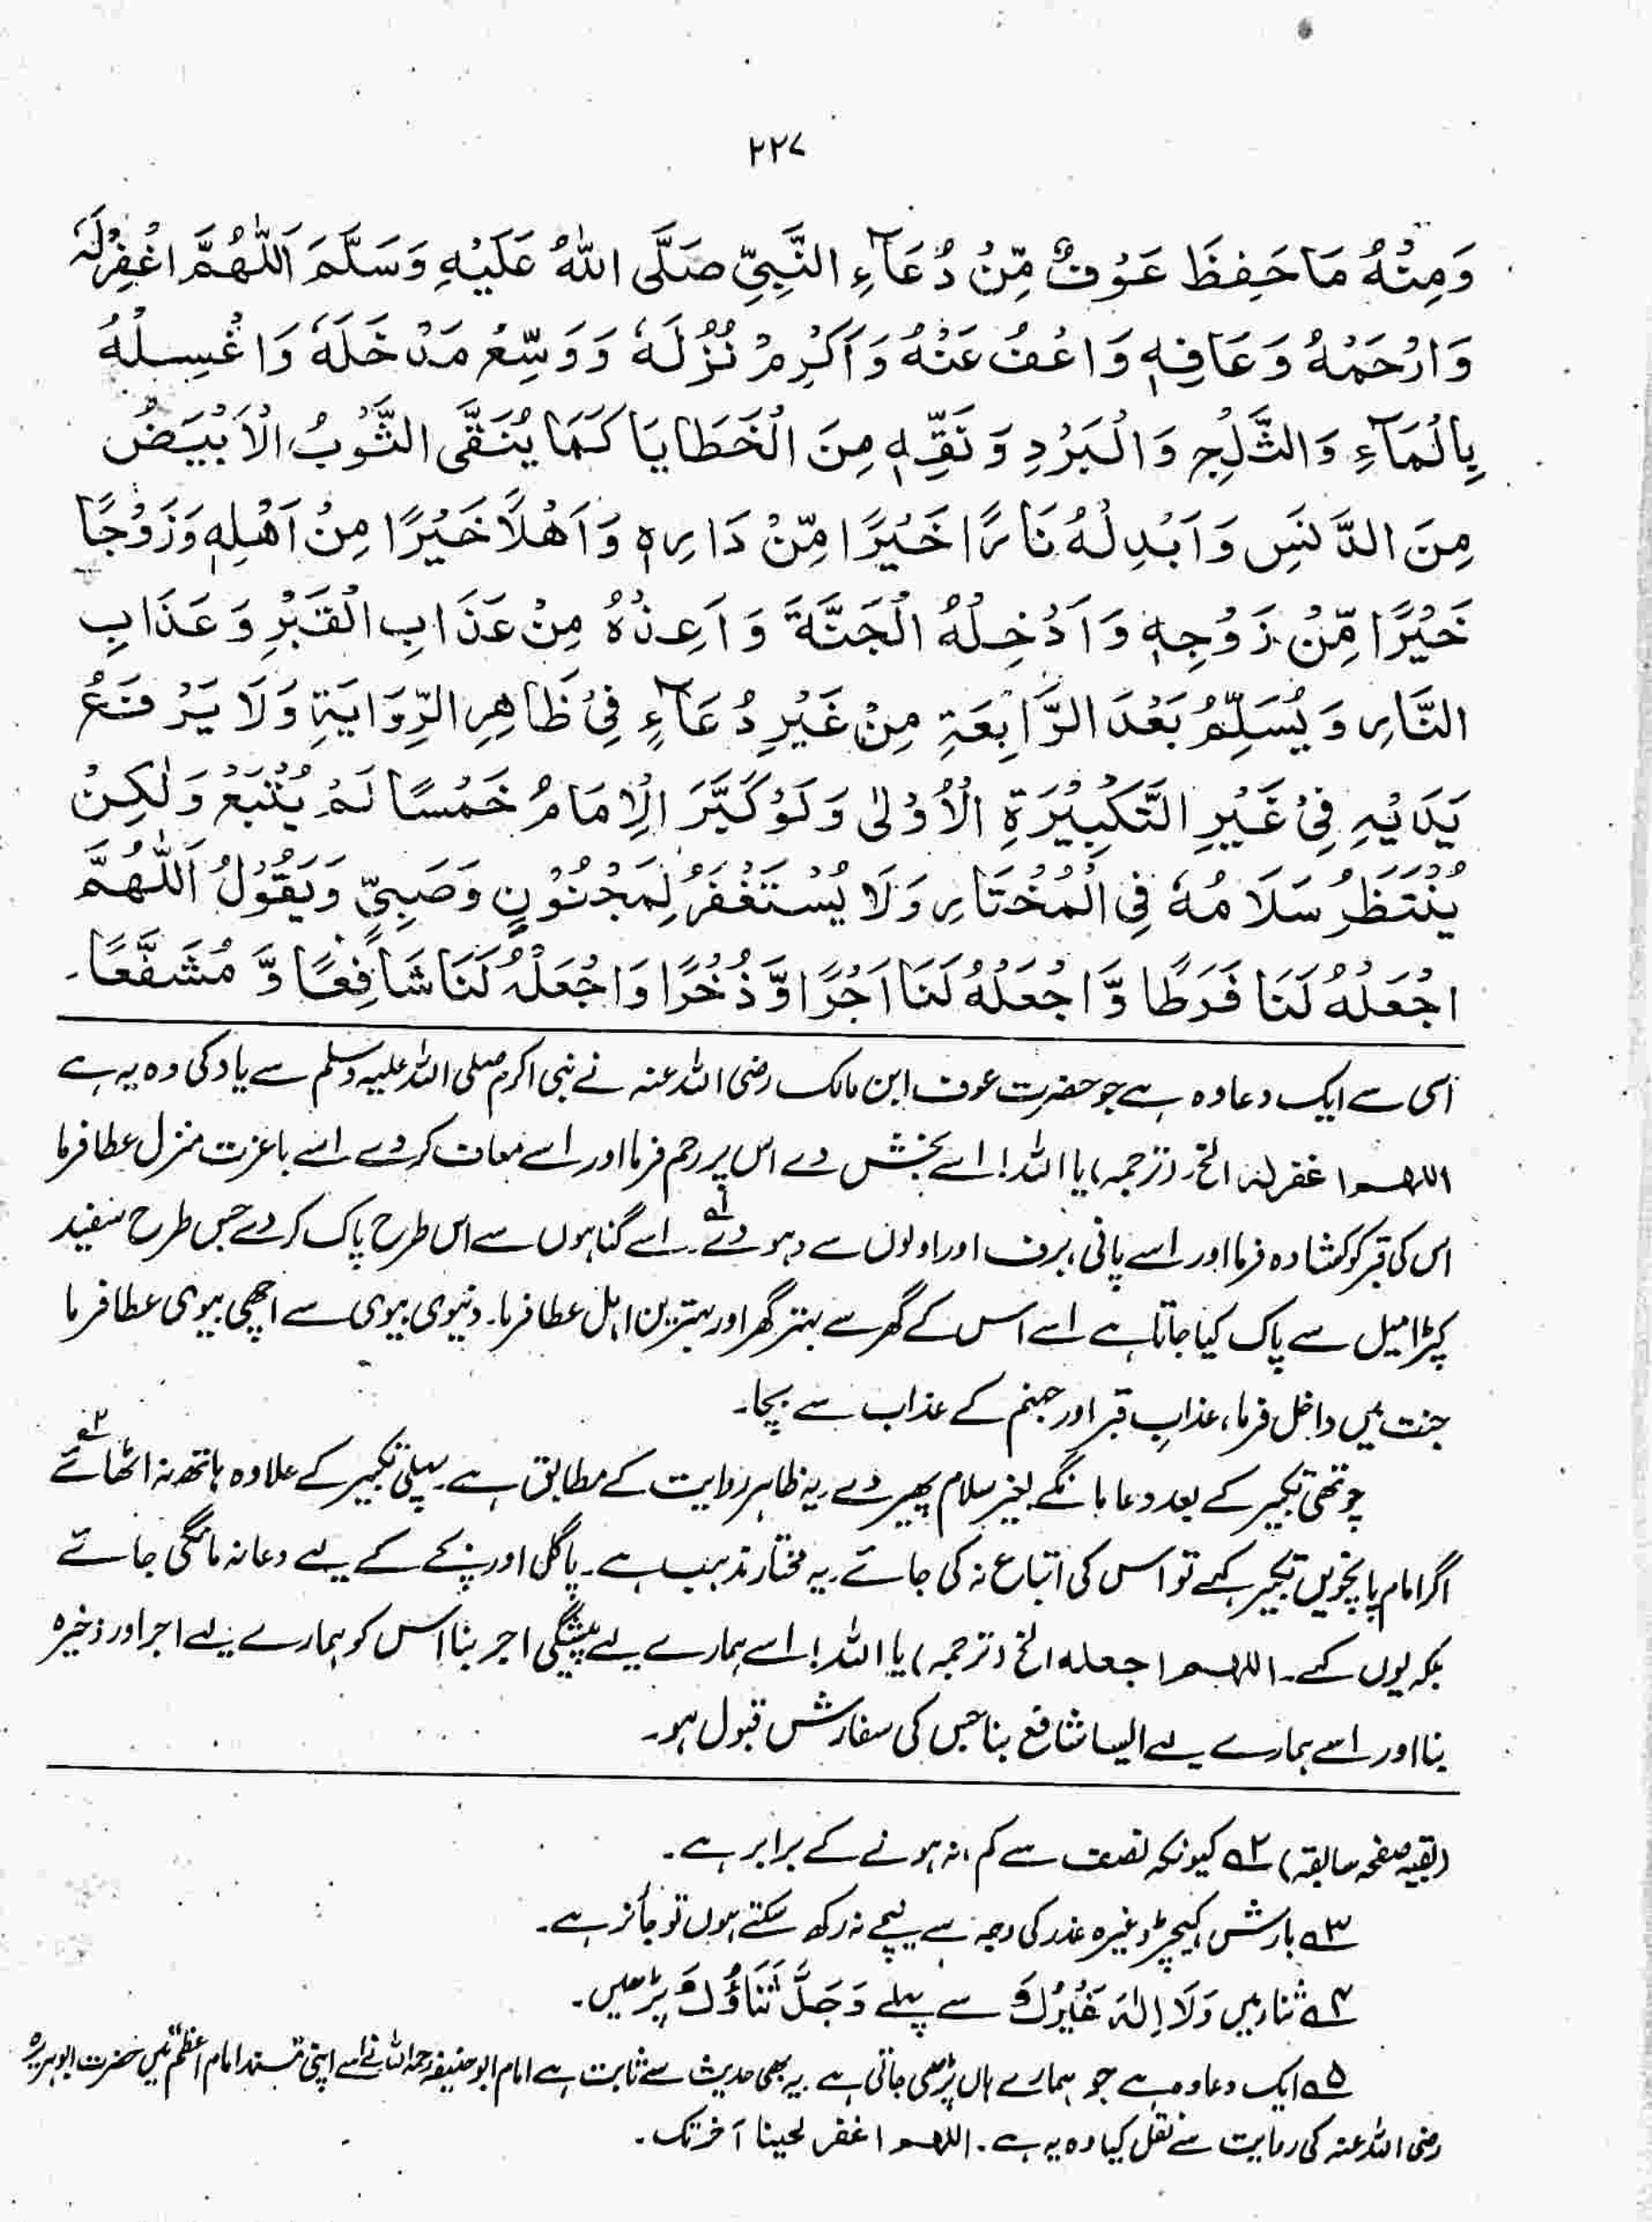 ۲۲۷
وَمِنْهُ مَا حَفِظَ عَوْفٌ مِّنْ دُعَآءِ النَّبِيِّ صَلَّى اللهُ عَلَيْهِ وَسَلَّمَ اَللّٰهُمَّ اغْفِرْلَهٗ
وَارْحَمْهُ وَعَافِهٖ وَاعْفُ عَنْهُ وَاَكْرِمْ نُزُلَهٗ وَوَسِّعْ مَدْخَلَهٗ وَاغْسِلْهُ
بِالْمَآءِ وَالثَّلْجِ وَالْبَرْدِ وَنَقِّهٖ مِنَ الْخَطَايَا كَمَا يُنَقَّى الثَّوْبُ الْاَبْيَضُ
مِنَ الدَّنَسِ وَاَبْدِلْهُ نَارًا خَيْرًا مِّنْ دَارِهٖ وَاَهْلًا خَيْرًا مِنْ اَهْلِهٖ وَزَوْجًا
خَيْرًا مِّنْ زَوْجِهٖ وَاَدْخِلْهُ الْجَنَّةَ وَاَعِذْهُ مِنْ عَذَابِ الْقَبْرِ وَعَذَابِ
النَّارِ وَيُسَلِّمُ بَعْدَ الرَّابِعَةِ مِنْ غَيْرِ دُعَآءٍ فِيْ ظَاهِرِ الرِّوَايَةِ وَلَا يَرْفَعُ
يَدَيْهِ فِيْ غَيْرِ التَّكْبِيْرَةِ الْاُوْلٰى وَلَوْ كَبَّرَ الْاِمَامُ خَمْسًا لَمْ يُتْبَعْ وَلٰكِنْ
يُنْتَظَرُ سَلَامُهٗ فِي الْمُخْتَارِ وَلَا يُسْتَغْفَرُ لِمَجْنُوْنٍ وَصَبِيٍّ وَيَقُوْلُ اَللّٰهُمَّ
اجْعَلْهُ لَنَا فَرَطًا وَّاجْعَلْهُ لَنَا اَجْرًا وَّذُخْرًا وَاجْعَلْهُ لَنَا شَافِعًا وَّ مُشَفَّعًا۔
اسی سے ایک دعا وہ ہے جو حضرت عوف ابن مالک رضی اللہ عنہ نے نبی اکرم صلی اللہ علیہ وسلم سے یاد کی وہ یہ ہے
اللھم اغفر لہ الخ (ترجمہ) یا اللہ! اسے بخش دے اس پر رحم فرما اور اسے معاف کر دے اسے باعزت منزل عطا فرما
اس کی قبر کو کشادہ فرما اور اسے پانی، برف اور اولوں سے دہو دے۱؎۔ اسے گناہوں سے اس طرح پاک کر دے جس طرح سفید
کپڑا میل سے پاک کیا جاتا ہے اسے اس کے گھر سے بہتر گھر اور بہترین اہل عطا فرما۔ دنیوی بیوی سے اچھی بیوی عطا فرما
جنت میں داخل فرما، عذابِ قبر اور جہنم کے عذاب سے بچا۔
چوتھی تکبیر کے بعد دعا مانگے بغیر سلام پھیر دے۔ یہ ظاہر روایت کے مطابق ہے۔ پہلی تکبیر کے علاوہ ہاتھ نہ اٹھائے۲؎
اگر امام پانچویں تکبیر کہے تو اس کی اتباع نہ کی جائے۔ یہ مختار مذہب ہے۔ پاگل اور بچے کے لیے دعا نہ مانگی جائے
بلکہ یوں کہے۔ اللہم اجعلہ الخ (ترجمہ) یا اللہ! اسے ہمارے لیے پیشگی اجر بنا اس کو ہمارے لیے اجر اور ذخیرہ
بنا اور اسے ہمارے لیے ایسا شافع بنا جس کی سفارش قبول ہو۔
(بقیہ صفحہ سابقہ) ۲؎ کیونکہ نصف سے کم، نہ ہونے کے برابر ہے۔
۳؎ بارش، کیچڑ وغیرہ عذر کی وجہ سے نیچے نہ رکھ سکتے ہوں تو جائز ہے۔
۴؎ ثنا میں وَلَا اِلٰہَ غَیْرُكَ سے پہلے وَجَلَّ ثَنَاؤُكَ پڑھیں۔
۵؎ ایک دعا وہ ہے جو ہمارے ہاں پڑھی جاتی ہے یہ بھی حدیث سے ثابت ہے امام ابو حنیفہ رحمہ اللہ نے اسے اپنی مسند امام اعظم میں حضرت ابو ہریرہ
رضی اللہ عنہ کی روایت سے نقل کیا وہ یہ ہے۔ اللھم اغفر لحینا آخر تک۔